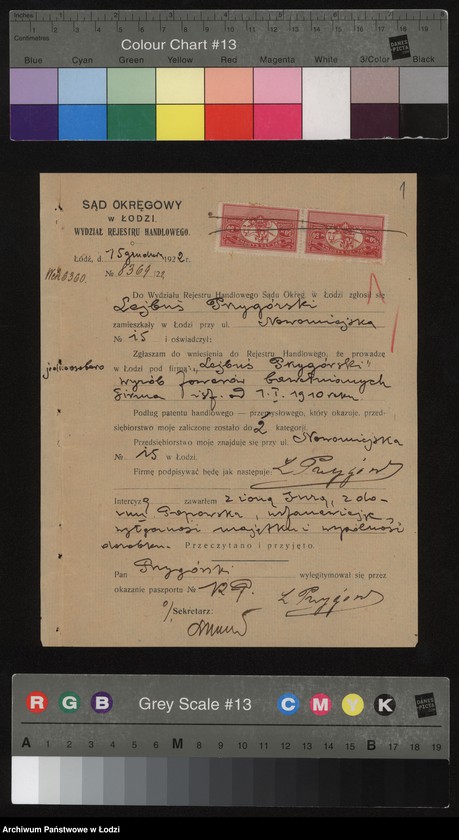 Inches
Centimetres
Colour Chart #13
DANES
PICTA
Blue Cyan Green Yellow Red Magenta White 3/Color Black
1
SĄD OKRĘGOWY
w ŁODZI.
WYDZIAŁ REJESTRU HANDLOWEGO.
Łódź, d. 15 grudnia 1922 r.
№ 8369/22
6360.
Do Wydziału Rejestru Handlowego Sądu Okręg. w Łodzi zgłosił się
Lejbuś Przygórski
zamieszkały w Łodzi przy ul. Nowomiejska
№ 15 i oświadczył:
Zgłaszam do wniesienia do Rejestru Handlowego, że prowadzę
jednoosobowo w Łodzi pod firmą: „Lejbuś Przygórski"
wyrób towarów bawełnianych
Firma istn. od 1.I.1910 roku
Podług patentu handlowego — przemysłowego, który okazuję, przed-
siębiorstwo moje zaliczone zostało do 2 kategorji
Przedsiębiorstwo moje znajduje się przy ul. Nowomiejska
№ 15 w Łodzi.
Firmę podpisywać będę jak następuje: L Przygórs
Intercyzę zawarłem z żoną z do-
mu
wyłączność majątku i wspólność
dorobku. Przeczytano i przyjęto.
Pan Przygórski wylegitymował się przez
okazanie paszportu №
L Przygórs
Sekretarz:
R G B Grey Scale #13 C M Y K
DANES
PICTA
A 1 2 3 4 5 6 M 8 9 10 11 12 13 14 15 B 17 18 19
Archiwum Państwowe w Łodzi